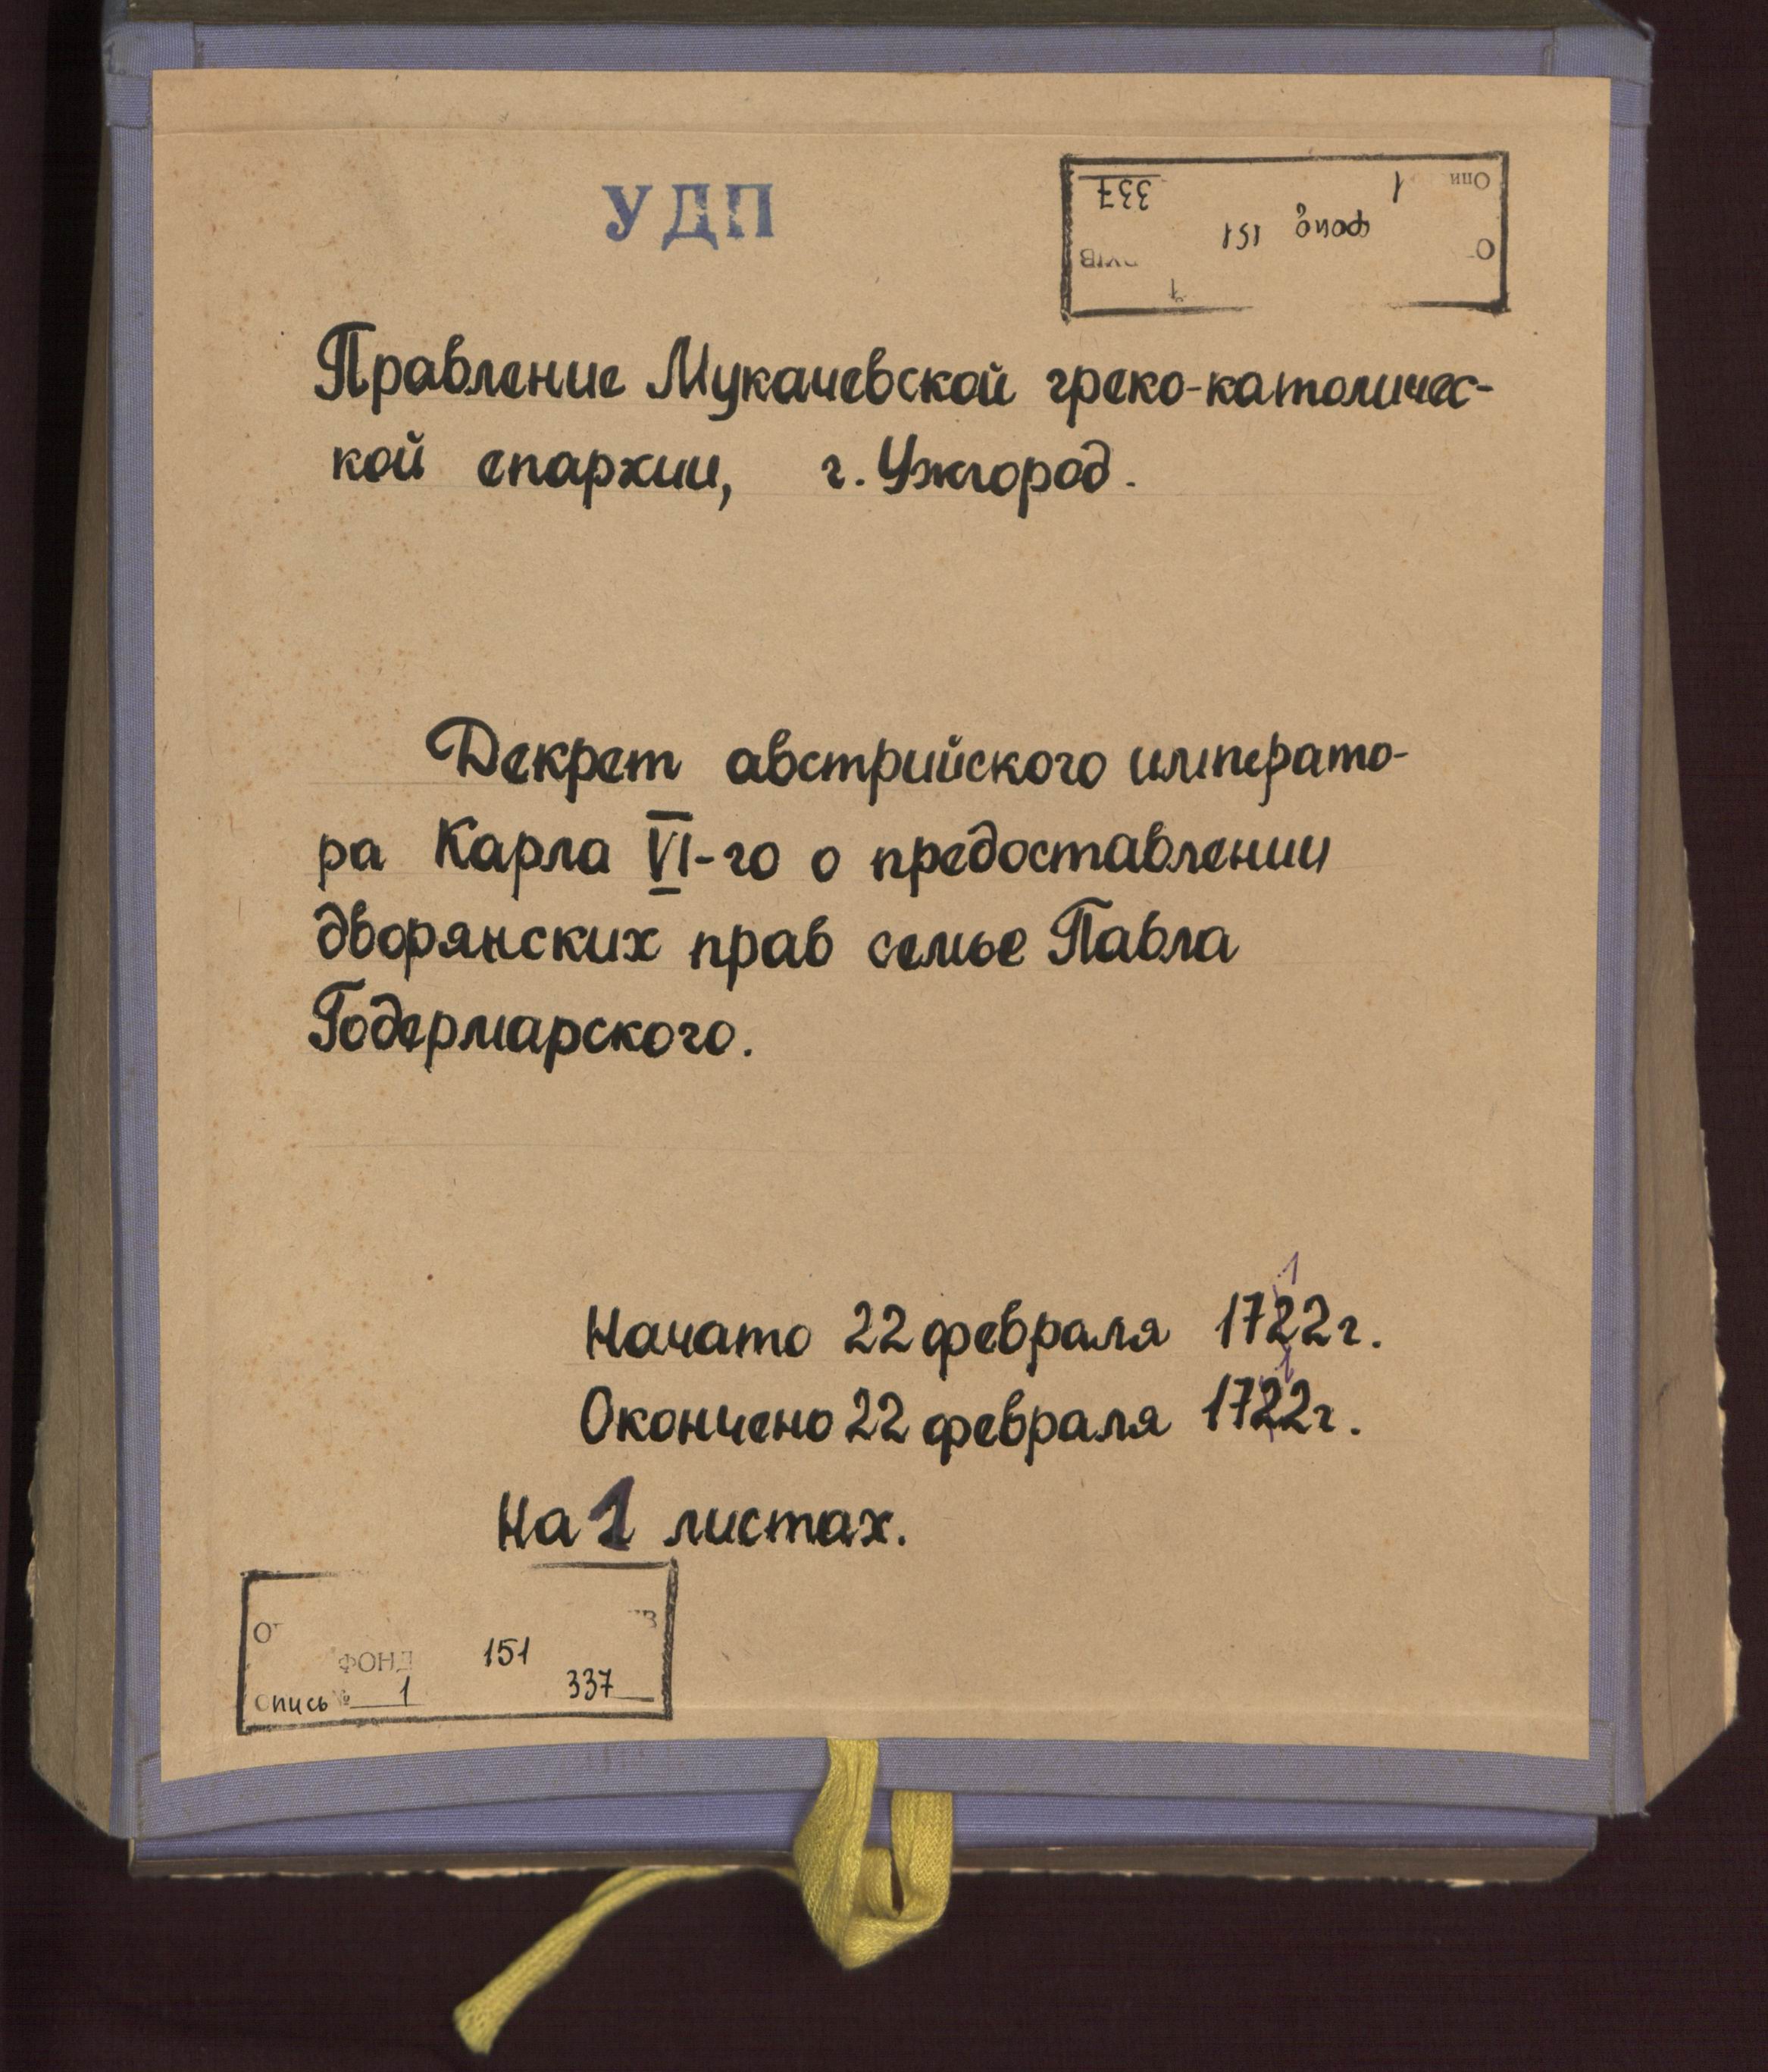 УДП
337 1 Опи
фонд 151
Правление Мукачевской греко-католичес-
кой епархии, г. Ужгород.
Декрет австрийского императо-
ра Карла VI-го о предоставлении
дворянских прав семье Павла
Годермарского.
1
Начато 22 февраля 1722 г.
1
Окончено 22 февраля 1722 г.
На 1 листах.
ФОНД 151
Опись № 1 337